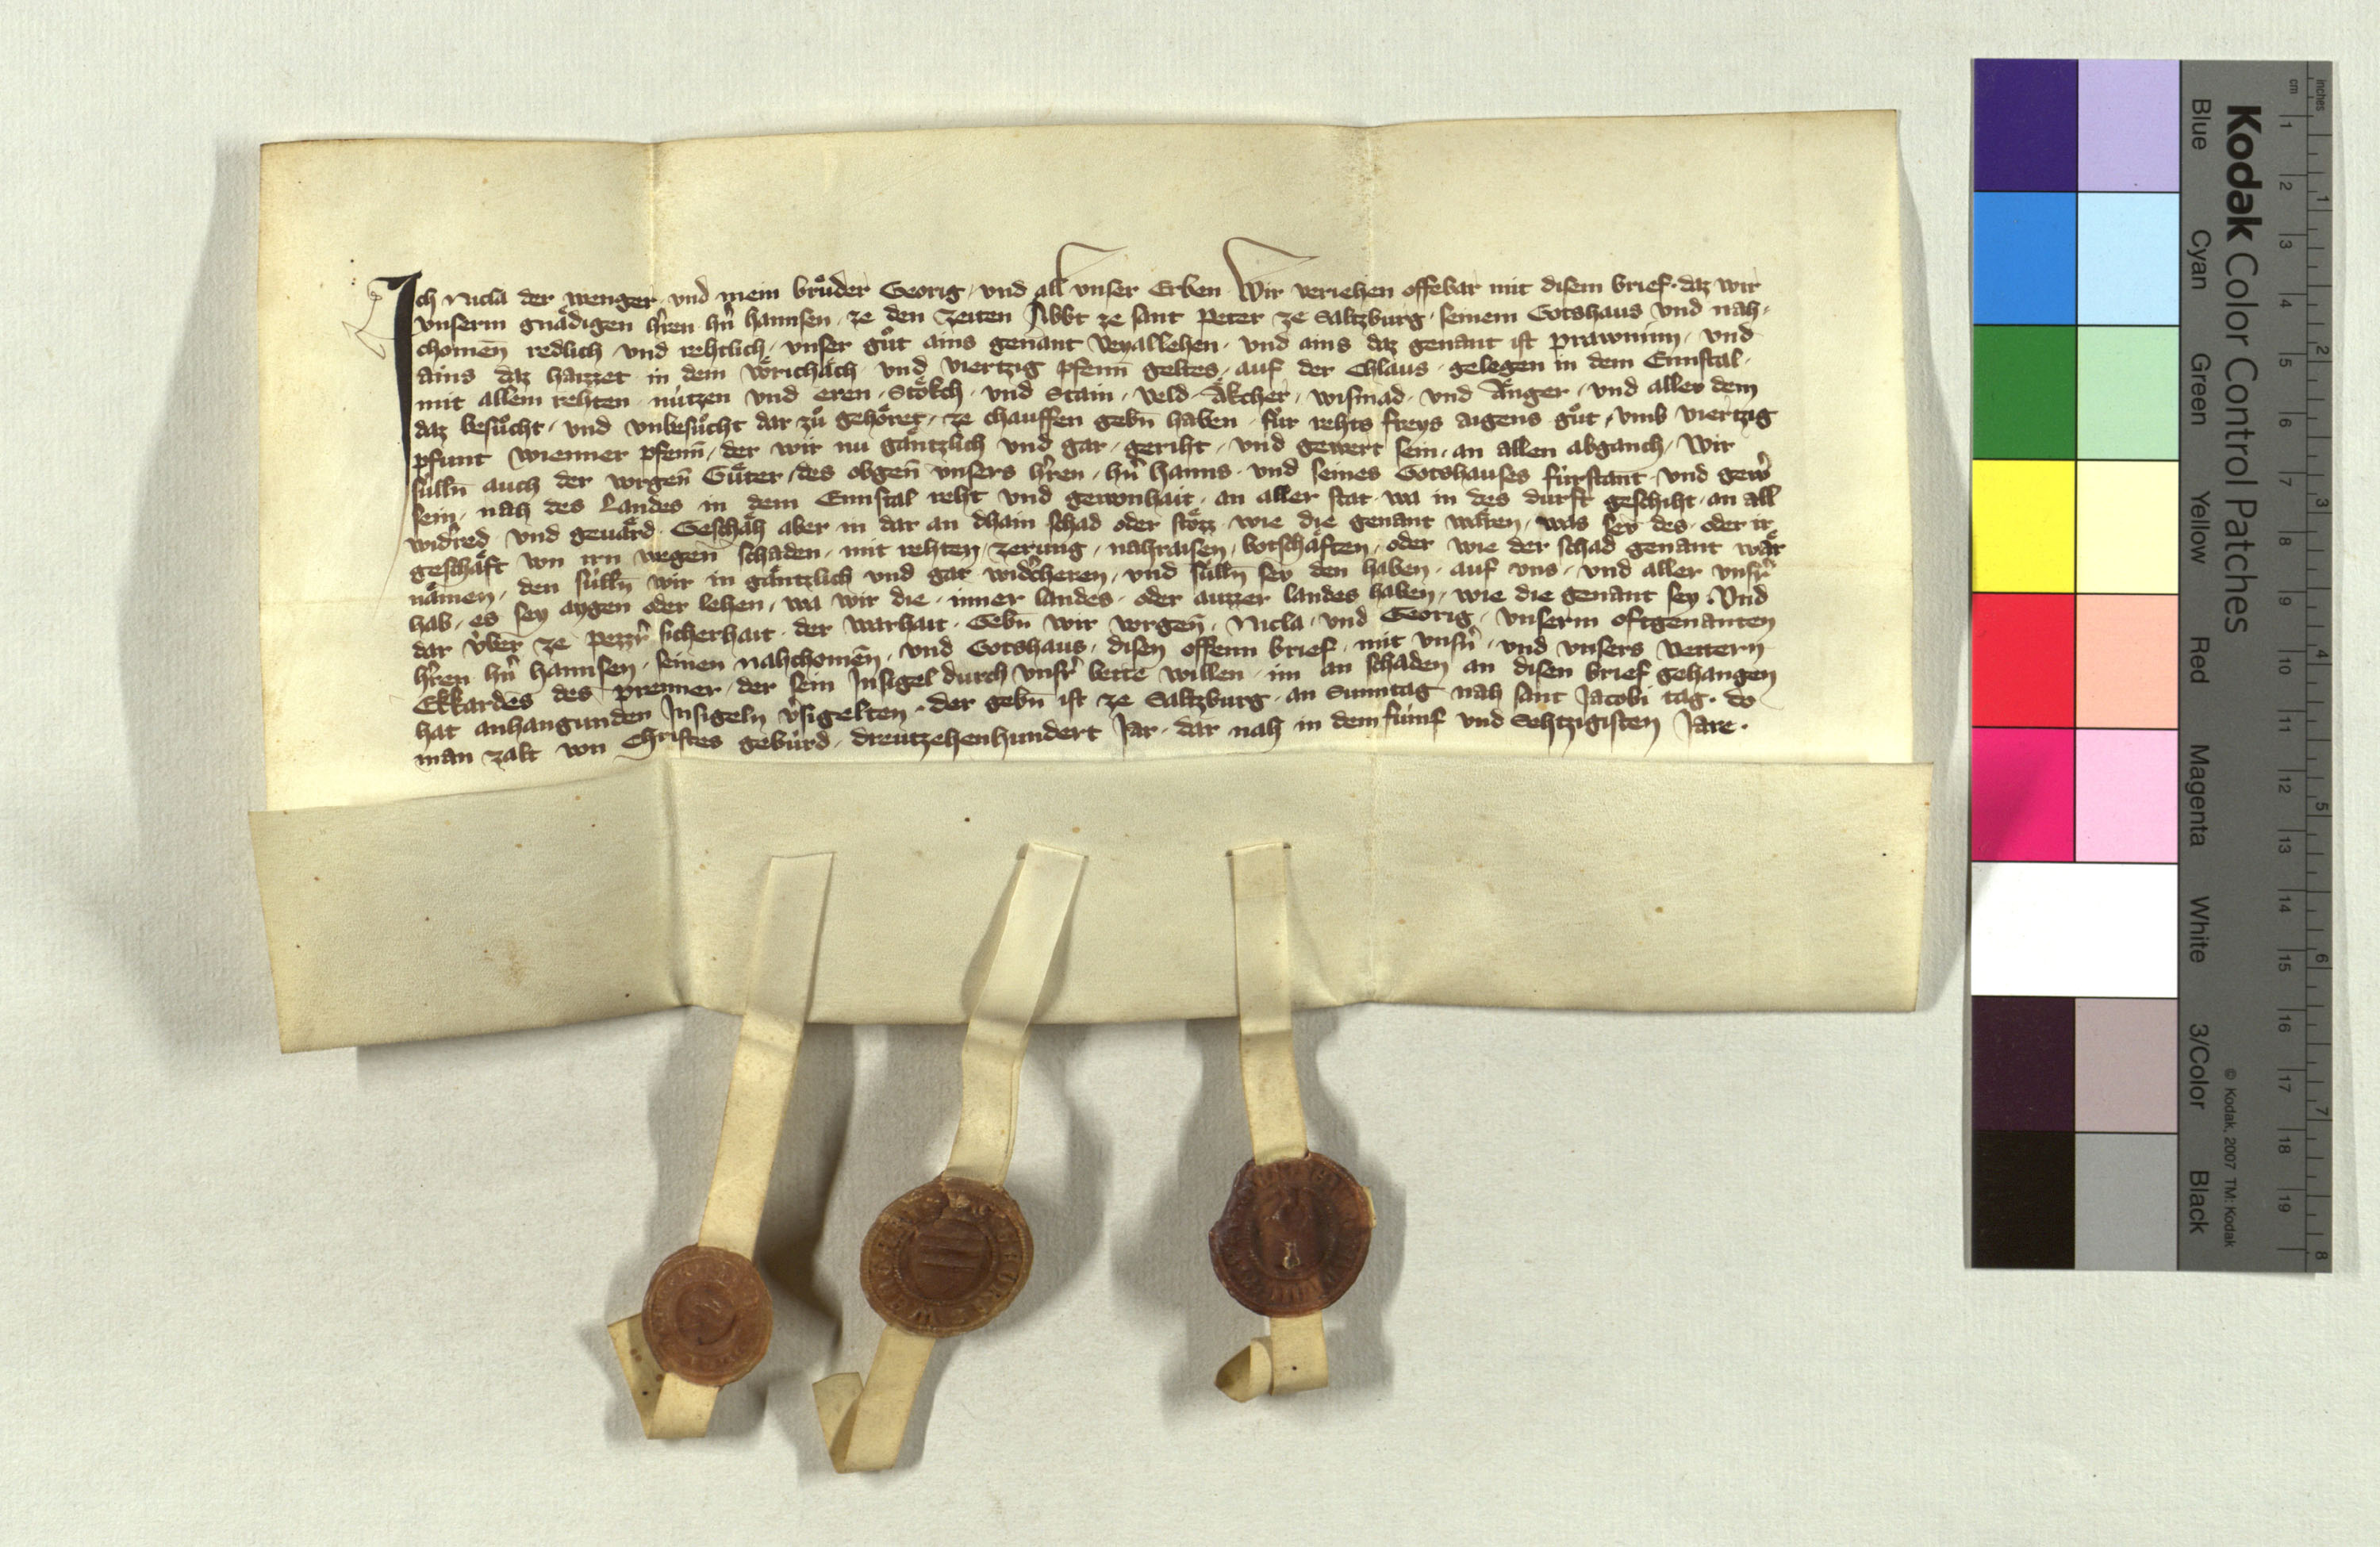 Ich Nicla der wenger und mein brůder Georig und all unser Erben Wir veriehen offebar mit disem brief daz wir
unserm gnaͤdigen hˀren hˀn hannsen ze den zeiten Abbt ze sant Peter ze Saltzburg seinem Gotshaus und nah
chomen̄ redlich und rehtlich unser gůt ains genant Veyallehen und ains daz genant ist prawninn und
ains daz haizzet in dem woͤrichaͤch und viertzig pfenn̄ geltes auf der Chlaus gelegen in dem Ennstal
mit allem rehten nützen und eren Stoͤkch und Stain veld Aͤkcher wismad und Aͤnger und aller dem
daz besůcht und unbesůcht dar zů gehoͤret ze chauffen gebn̄ haben für rehts freys aigens gůt umb viertzig
pfunt wienner pfenn̄ der wir nu gaͤntzlich und gar geriht und gewert sein an allen abganch Wir
sülln̄ auch der vorgen̄ Guͤter des obgen̄ unsers hˀren hˀn hanns und seines Gotshauses fürstant und gewˀ
sein nah des Landes in dem Ennstal reht und gewonhait an aller stat wa in des durft geschiht an all
widˀred und geuaͤrd Geschaͤh aber in dar an dhain schad oder stoͤzz wie die genant waͤren was sey des oder ir
geschaͤft von irn wegen schaden mit rehten zerung nahraisen botschaften oder wie der schad genant waͤr
naͤmen den sülln̄ wir in gaͤntzlich und gar widˀcheren und sülln̄ sey den haben auf uns und aller unsrˀ
hab es sey aygen oder lehen wa wir die inner landes oder auzzer landes haben wie die genant sey Und
dar über ze pezzrˀ sicherhait der warhait Gebn̄ wir vorgen̄ Nicla und Georig unserm oftgenanten
hˀren hˀn hannsen seinen nahchomen̄ und Gotshaus disen offenn brief mit unsrˀn und unsers Vettern
Ekkardes des prenner der sein Insigel durch unsrˀ bette willen im an schaden an disen brief gehangen
hat anhangunden Insigeln vˀsigelten der gebn̄ ist ze Saltzburg an Sunntag nah sant Jacobi tag do
man zalt von Christes gebürd dreutzehenhundert Jar dar nah in dem fümf und Sehtzigisten Jare
Kodak Color Control Patches
Blue Cyan Green Yellow Red Magenta White 3/Color Black
© Kodak, 2007 TM: Kodak
cm 1 2 3 4 5 6 7 8 9 10 11 12 13 14 15 16 17 18 19
inches 1 2 3 4 5 6 7 8